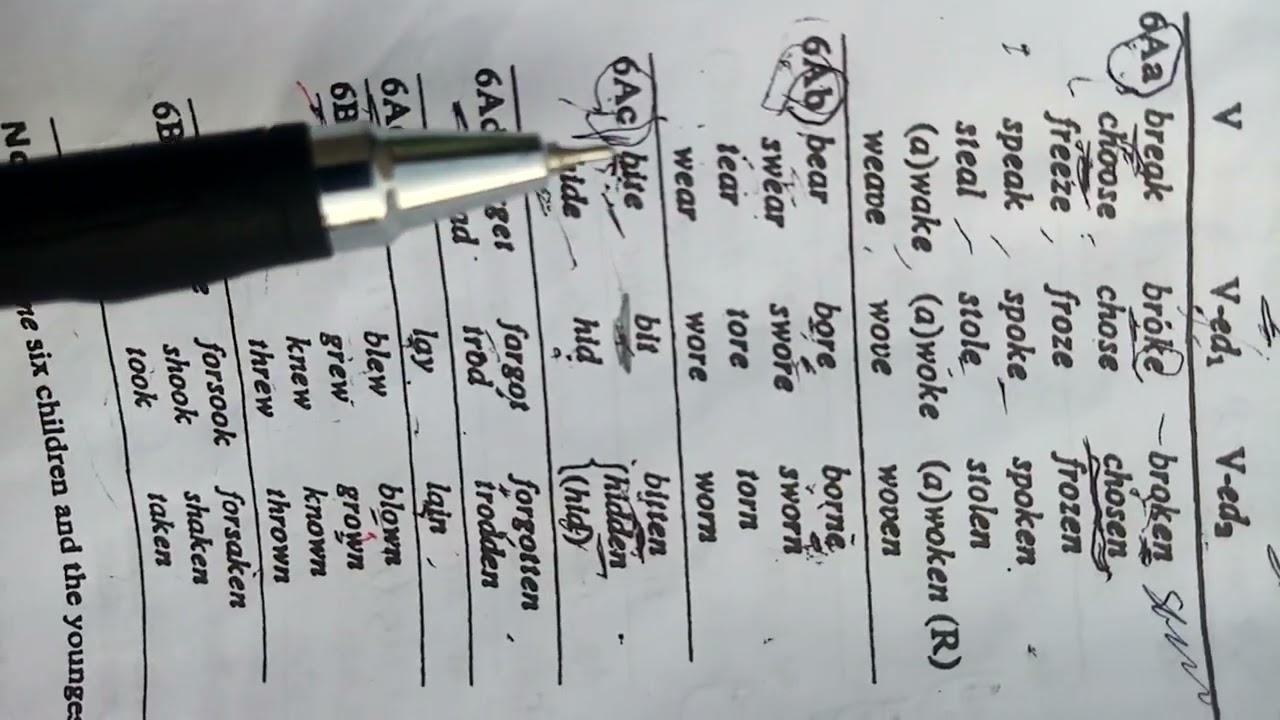 V V-ed₁ V-ed₂
6Aa break broke broken
choose chose chosen
freeze froze frozen
speak spoke spoken
steal stole stolen
(a)wake (a)woke (a)woken (R)
weave wove woven
6Ab bear bore borne
swear swore sworn
tear tore torn
wear wore worn
6Ac bite bit bitten
hid {hidden
(hid)
6Ad forgot forgotten
trod trodden
lay lain
6B blew blown
grew grown
knew known
threw thrown
forsook forsaken
shook shaken
took taken
six children and the younges